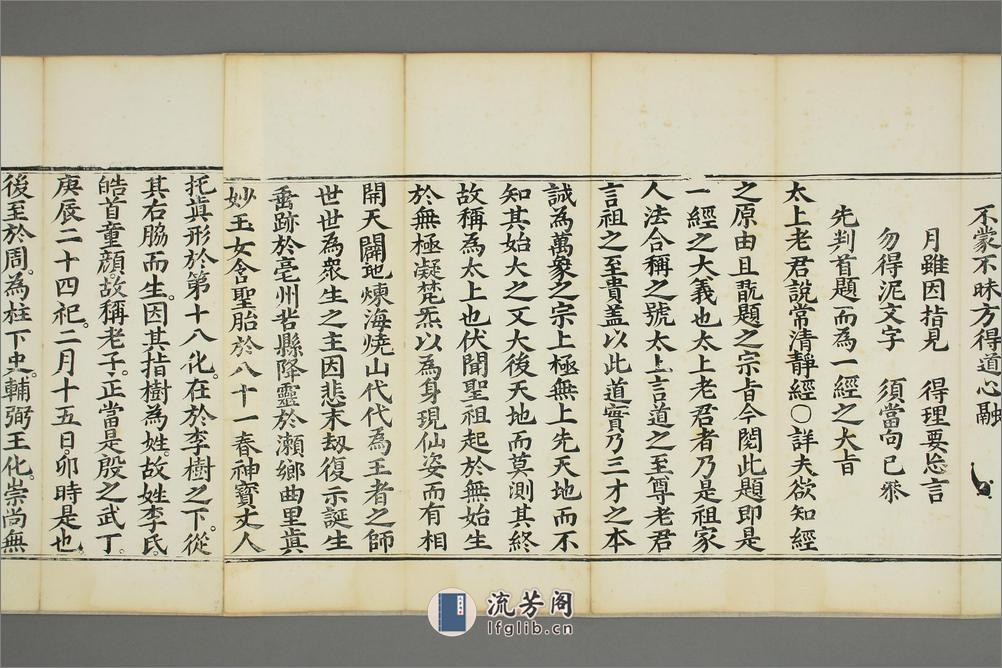 不蒙不昧方得道心融
月雖因指見　得理要忘言
勿得泥文字　須當向己叅
先判首題而為一經之大旨
太上老君說常清靜經〇詳夫欲知經
之原由且翫題之宗旨今閱此題即是
一經之大義也太上老君者乃是祖家
人法合稱之號太上言道之至尊老君
言祖之至貴盖以此道實乃三才之本
誠為萬象之宗上極無上先天地而不
知其始大之又大後天地而莫測其終
故稱為太上也伏聞聖祖起於無始生
於無極凝梵炁以為身現仙姿而有相
開天闢地煉海燒山代代為王者之師
世世為衆生之主因悲末劫復示誕生
垂跡於亳州苦縣降靈於瀬鄉曲里真
妙玉女含聖胎於八十一春神寳丈人
托真形於第十八化。在於李樹之下。從
其右脇而生。因其指樹為姓。故姓李氏。
皓首童顔。故稱老子。正當是殷之武丁。
庚辰二十四祀。二月十五日。卯時是也
後至於周。為柱下史。輔弼王化。崇尚無
流芳阁
lfglib.cn